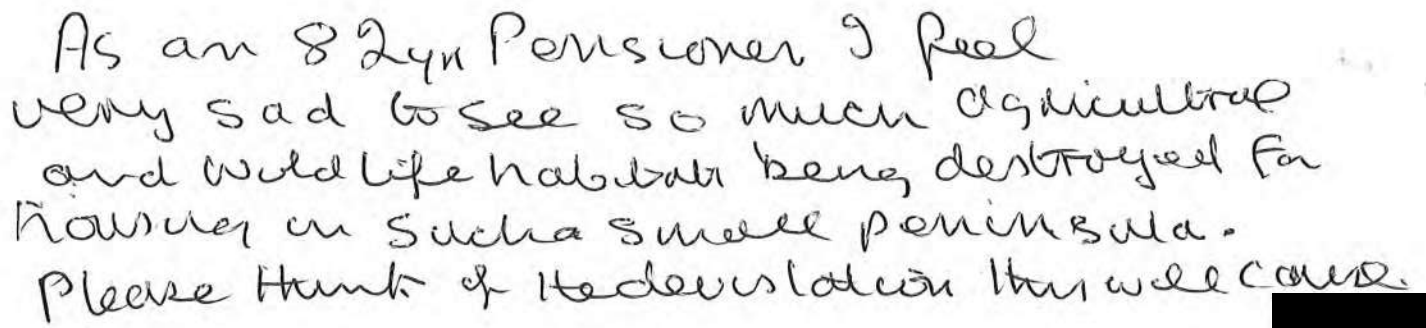 As an 82yr Pensioner I feel
very sad to see so much agricultral
and wildlife habitats being destroyed for
housing in such a small peninsula.
Please think of the devistation this will cause.